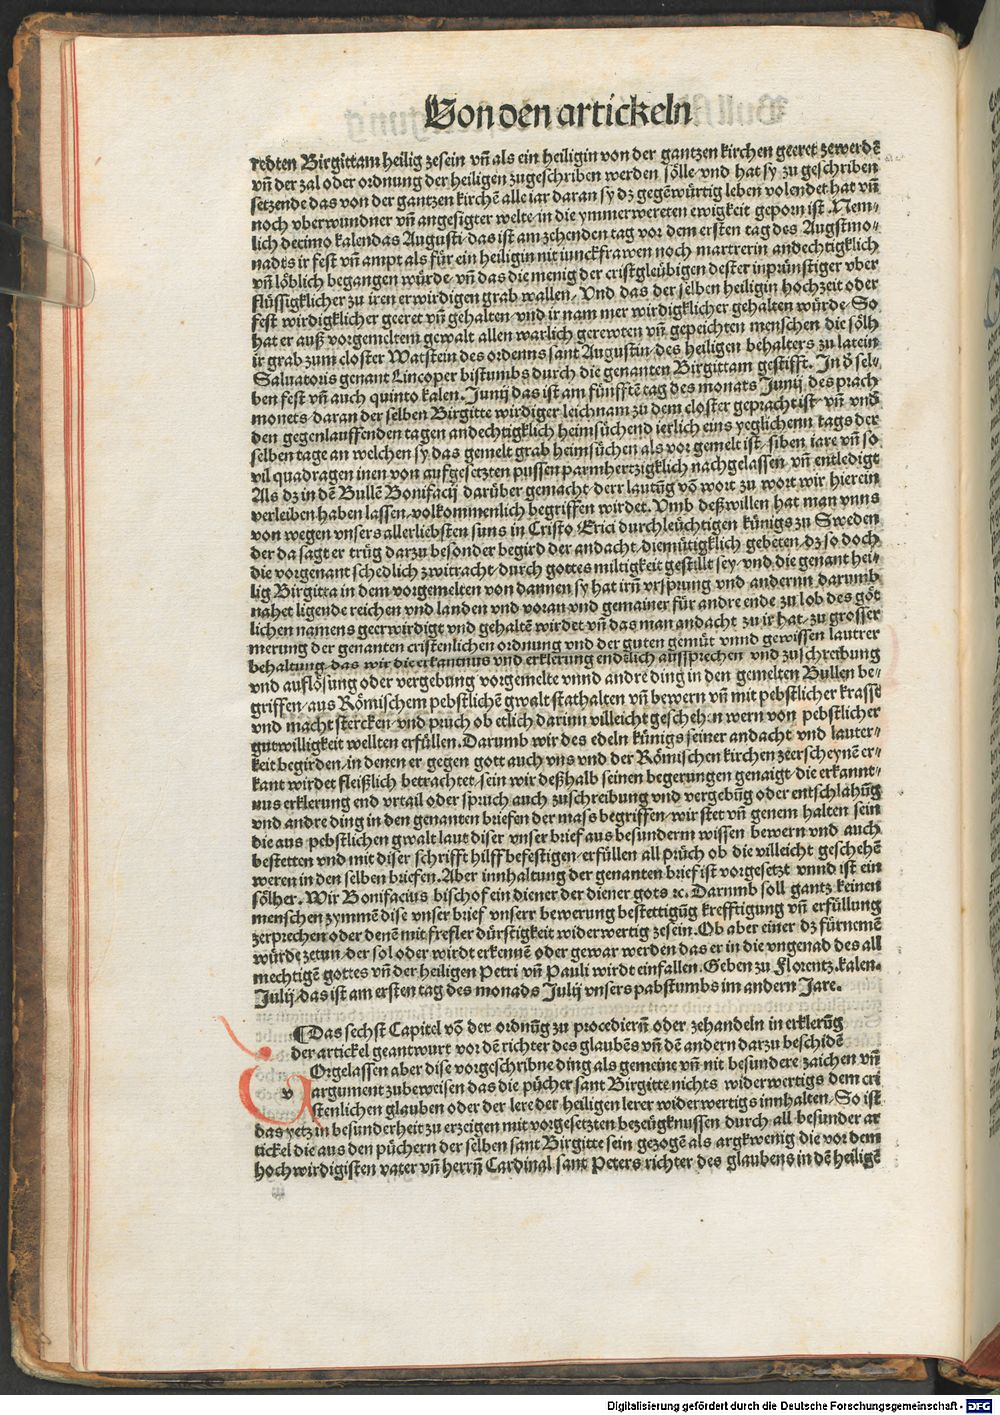 Von den artickeln
redten Birgittam heilig zesein vn̄ als ein heiligin von der gantzen kirchen geeret zewerdē
vn̄ der zal oder ordnung der heiligen zugeschriben werden sölle vnd hat sy zu geschriben
setzende das von der gantzen kirchē alle iar daran sy dz gegēwürtig leben volendet hat vn̄
noch vberwundner vn̄ angesigter welte in die ymmerwereten ewigkeit geporn ist Nem⸗
lich decimo kalendas Augusti das ist am zehenden tag vor dem ersten tag des Augstmo⸗
nadts ir fest vn̄ ampt als für ein heiligin nit iunckfrawen noch martrerin andechtigklich
vn̄ löblich begangen würde vn̄ das die menig der cristgleübigen dester inprünstiger vber
flüssigklicher zu iren erwirdigen grab wallen Vnd das der selben heiligin hochzeit oder
fest wirdigklicher geeret vn̄ gehalten vnd ir nam mer wirdigklicher gehalten würde So
hat er auß vorgemeltem gewalt allen warlich gerewten vn̄ gepeichten menschen die sölh
ir grab zum closter Watstein des ordenns sant Augustin des heiligen behalters zu latein
Saluatoris genant Lincoper bistumbs durch die genanten Birgittam gestifft. In d̄ sel⸗
ben fest vn̄ auch quinto kalen. Junij das ist am fünfftē tag des monats Junij des prach
monets daran der selben Birgitte wirdiger leichnam zu dem closter gepracht ist vn̄ vnd
den gegenlauffenden tagen andechtigklich heimsüchend ierlich eins yeglichenn tags der
selben tage an welchen sy das gemelt grab heimsüchen als vor gemelt ist siben iare vn̄ so
vil quadragen inen von aufgesetzten pussen parmhertzigklich nachgelassen vn̄ entledigt
Als dz in dē Bullē Bonifacij darüber gemacht derr lautūg vō wort zu wort wir hierein
verleiben haben lassen volkommenlich begriffen wirdet. Vmb deßwillen hat man vnns
von wegen vnsers allerliebsten suns in Cristo Erici durchleüchtigen künigs zu Sweden
der da sagt er trüg darzu besonder begird der andacht diemütigklich gebeten dz so doch
die vorgenant schedlich zwitracht durch gottes miltigkeit gestillt sey vnd die genant hei⸗
lig Birgitta in dem vorgemelten von dannen sy hat irn̄ vrsprung vnd andernn darumb
nahet ligende reichen vnd landen vnd voran vnd gemainer für andre ende zu lob des göt
lichen namens geerwirdigt vnd gehaltē wirdet vn̄ das man andacht zu ir hat zu grosser
merung der genanten cristenlichen ordnung vnd der guten gemüt vnnd gewissen lautrer
behaltung das wir die erkantnus vnd erklerung endēlich aussprechen vnd zuschreibung
vnd auflösung oder vergebung vorgemelte vnnd andre ding in den gemelten Bullen be⸗
griffen aus Römischem pebstlichē gwalt stathalten vn̄ bewern vn̄ mit pebstlicher krasse
vnd macht stercken vnd pruch ob etlich darinn villeicht geschehen wern von pebstlicher
gutwilligkeit wellten erfüllen. Darumb wir des edeln künigs seiner andacht vnd lauter⸗
keit begirden in denen er gegen gott auch vns vnd der Römischen kirchen zeerscheynē er⸗
kant wirdet fleißlich betrachtet sein wir deßhalb seinen begerungen genaigt die erkannt⸗
nus erklerung end vrtail oder spruch auch zuschreibung vnd vergebūg oder entschlahūg
vnd andre ding in den genanten briefen der mass begriffen wir stet vn̄ genem halten sein
die aus pebstlichen gwalt laut diser vnser brief aus besunderm wissen bewern vnd auch
bestetten vnd mit diser schrifft hilff befestigen erfüllen all prüch ob die villeicht geschehē
weren in den selben briefen. Aber innhaltung der genanten brief ist vorgesetzt vnnd ist ein
sölher. Wir Bonifacius bischof ein diener der diener gots ꝛc. Darumb soll gantz keinen
menschen zymmē dise vnser brief vnserr bewerung bestettigūg krefftigung vn̄ erfüllung
zerprechen oder denē mit frefler dürstigkeit widerwertig zesein. Ob aber einer dz fürnemē
würde zetun der sol oder wirdt erkennē oder gewar werden das er in die vngenad des all
mechtigē gottes vn̄ der heiligen Petri vn̄ Pauli wirdt einfallen. Geben zu Florentz. kalen.
Julij das ist am ersten tag des monads Julij vnsers pabstumbs im andern Jare.
¶ Das sechst Capitel vō der ordnūg zu procediern̄ oder zehandeln in erklerūg
der artickel geantwurt vor dē richter des glaubēs vn̄ dē andern darzu beschidē
v Orgelassen aber dise vorgeschribne ding als gemeine vn̄ nit besundere zaichen vn̄
argument zubeweisen das die pücher sant Birgitte nichts widerwertigs dem cri
stenlichen glauben oder der lere der heiligen lerer widerwertigs innhalten So ist
das yetz in besunderheit zu erzeigen mit vorgesetzten bezeügknussen durch all besunder ar
tickel die aus den püchern der selben sant Birgitte sein gezogē als argkwenig die vor dem
hochwirdigisten vater vn̄ herrn̄ Cardinal sant Peters richter des glaubens in dē heiligē
Digitalisierung gefördert durch die Deutsche Forschungsgemeinschaft - DFG